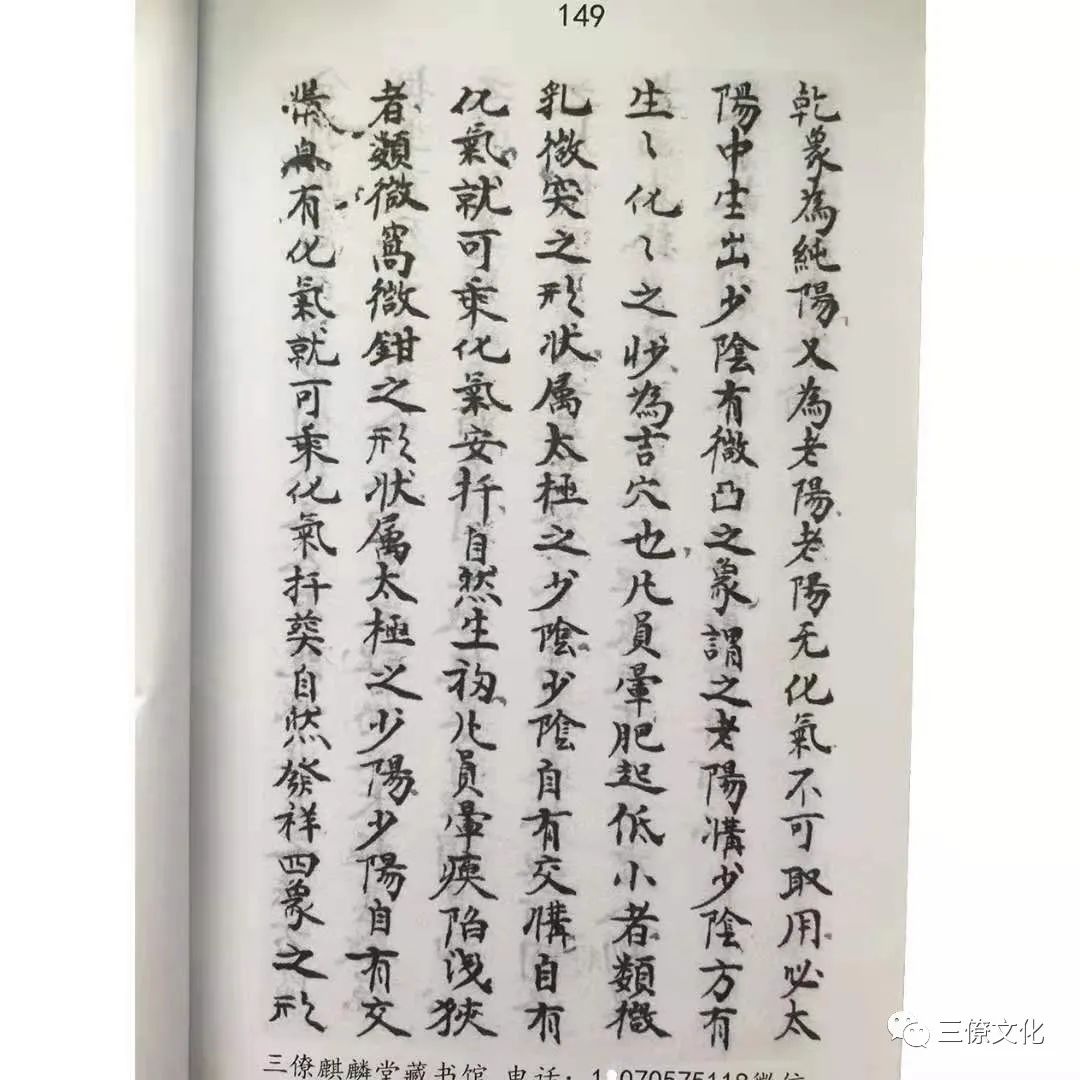 149
乾象為純陽又為老陽老陽无化氣不可取用必太
陽中生出少陰有微凸之象謂之老陽媾少陰方有
生〻化〻之妙為吉穴也凡員暈肥起低小者類微
乳微突之形状属太極之少陰少陰自有交媾自有
化氣就可乘化氣安扦自然生福凡員暈瘦陷浅狹
者類微窩微鉗之形状属太極之少陽少陽自有交
有化氣就可乘化氣扦葬自然發祥四象之形
三僚麒麟堂藏书馆 电话：
三僚文化